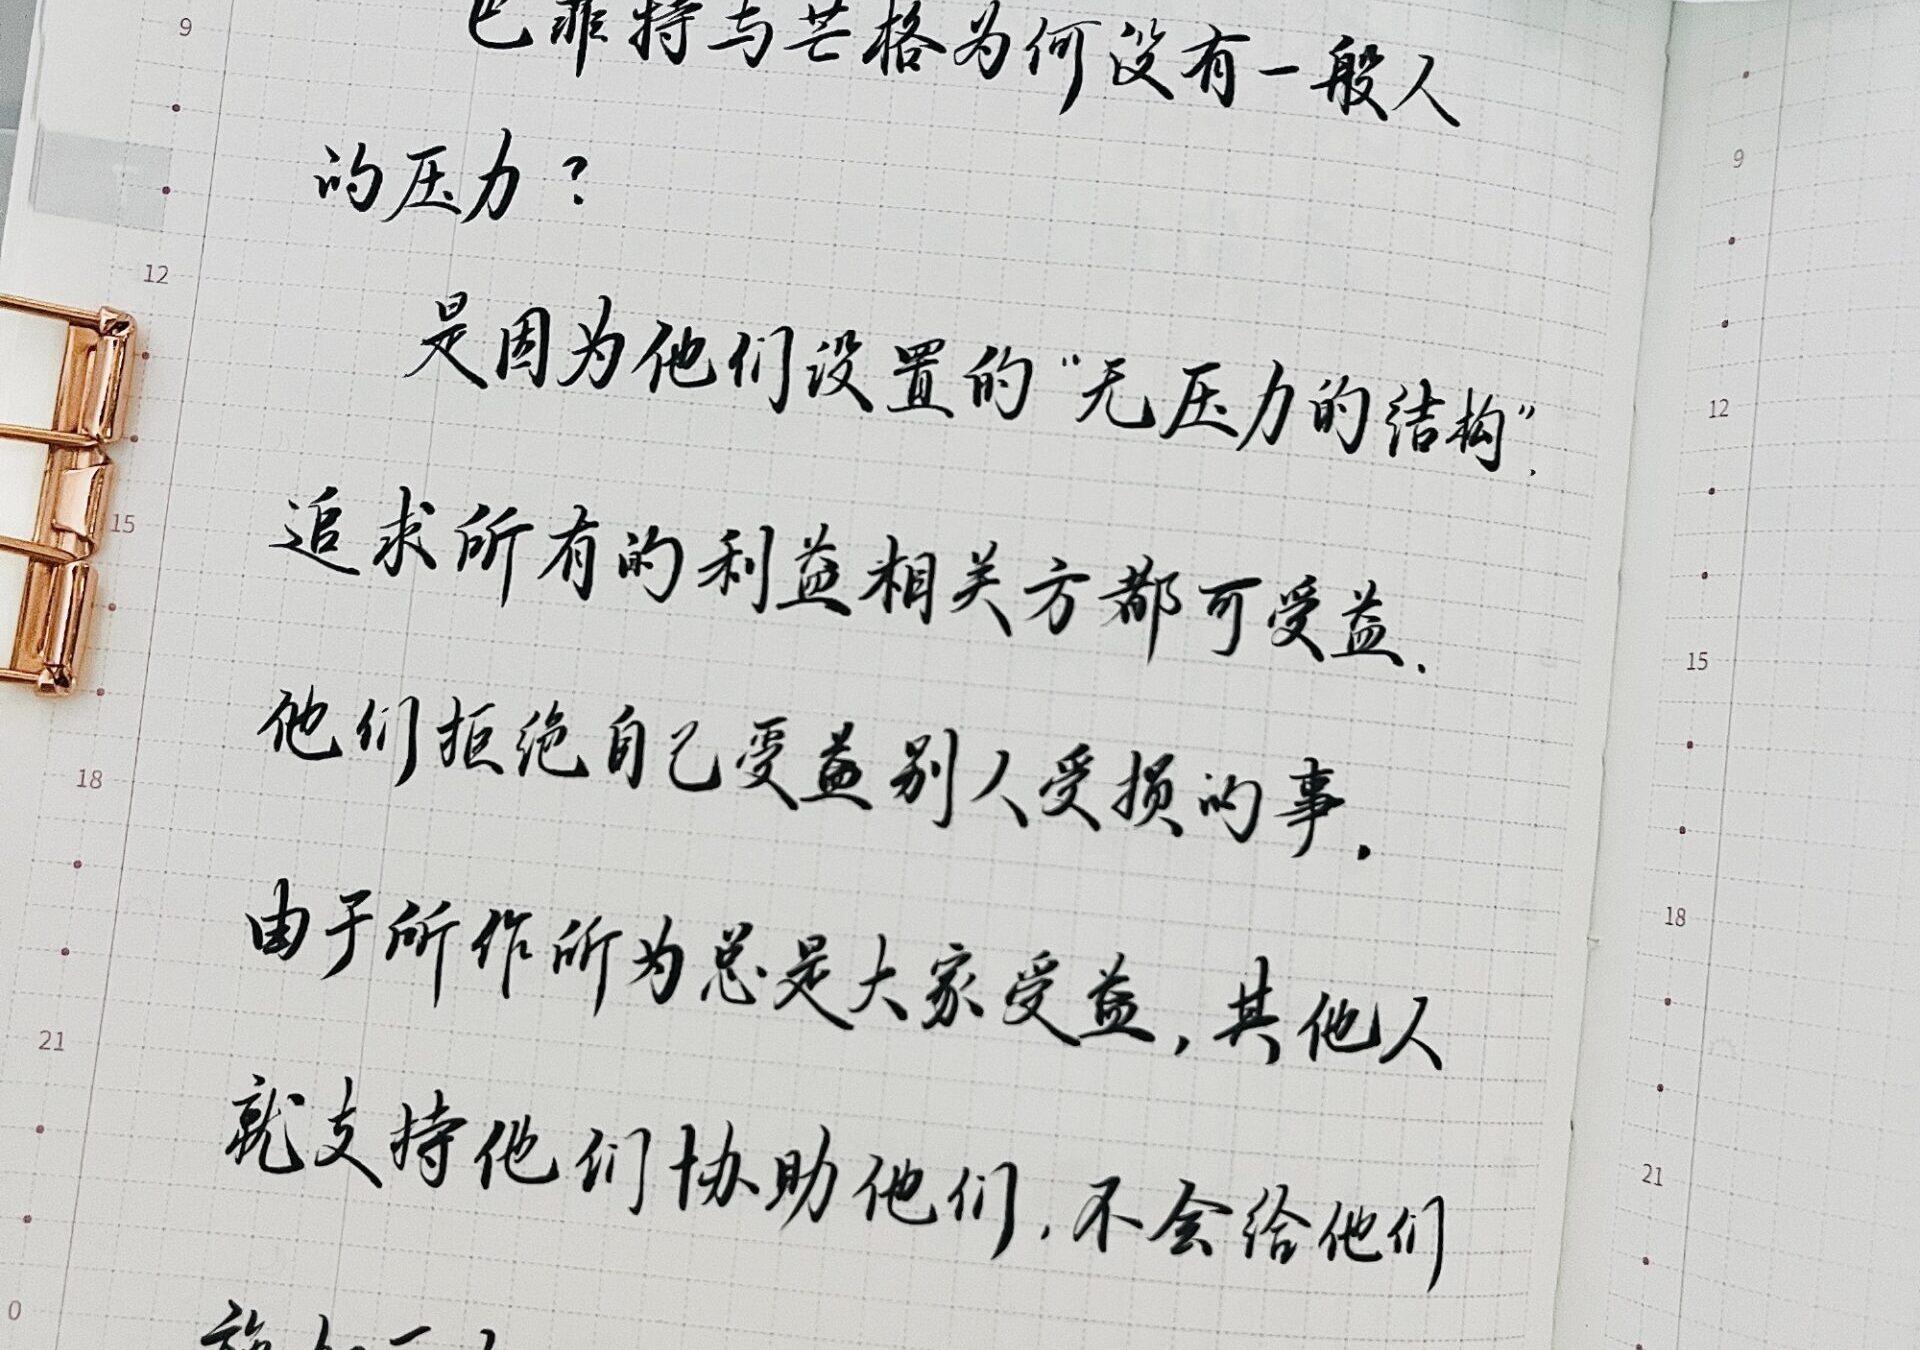 巴菲特与芒格为何没有一般人
的压力？
是因为他们设置的“无压力的结构”.
追求所有的利益相关方都可受益.
他们拒绝自己受益别人受损的事.
由于所作所为总是大家受益,其他人
就支持他们协助他们,不会给他们
9
12
15
18
21
0
9
12
15
18
21